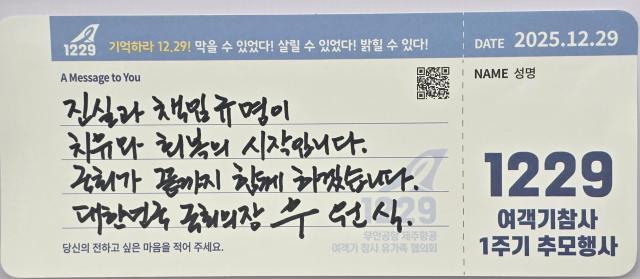 1229
기억하라 12.29! 막을 수 있었다! 살릴 수 있었다! 밝힐 수 있다!
A Message to You
진실과 책임규명이
치유와 회복의 시작입니다.
국회가 끝까지 함께 하겠습니다.
대한민국 국회의장 우원식.
1229
무안공항 제주항공
여객기 참사 유가족 협의회
당신의 전하고 싶은 마음을 적어 주세요.
DATE 2025.12.29
NAME 성명
1229
여객기참사
1주기 추모행사